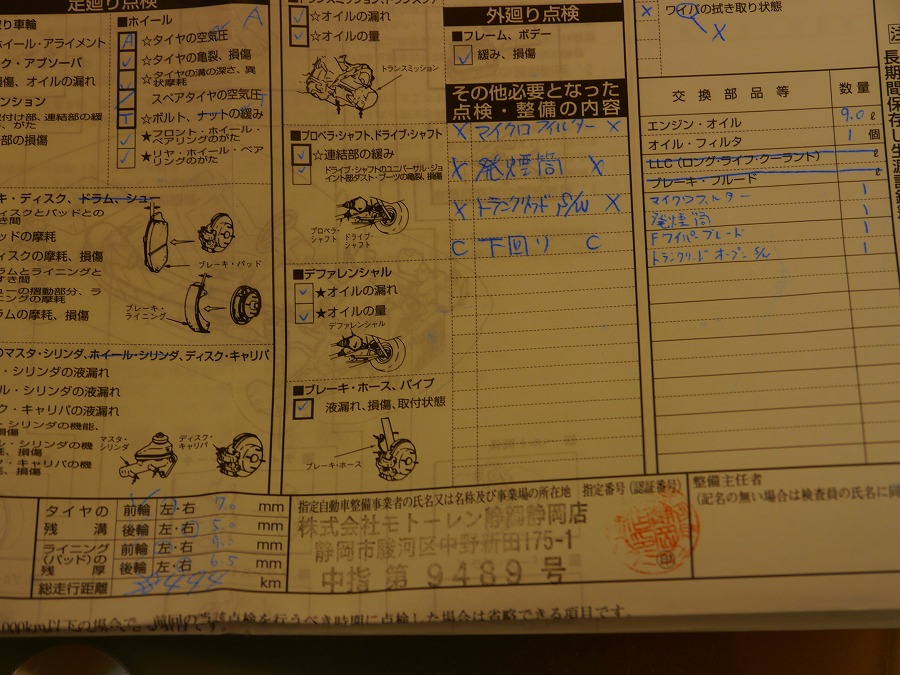 足廻り点検
取り車輪
ホイール・アライメント
ク・アブソーバ
損傷、オイルの漏れ
ンション
取付け部、連結部の緩
、がた
部の損傷
■ホイール
A
A ☆タイヤの空気圧
☆タイヤの亀裂、損傷
☆タイヤの溝の深さ、異
状摩耗
スペアタイヤの空気圧
T ☆ボルト、ナットの緩み
★フロント・ホイール・
ベアリングのがた
★リヤ・ホイール・ベア
リングのがた
キ・ディスク、ドラム、シュー
ディスクとパッドとの
き間
ッドの摩耗
ィスクの摩耗、損傷
ラムとライニングと
すき間
ューの摺動部分、ラ
ニングの摩耗
ラムの摩耗、損傷
ブレーキ・パッド
ブレーキ・
ライニング
のマスタ・シリンダ、ホイール・シリンダ、ディスク・キャリパ
・シリンダの液漏れ
ル・シリンダの液漏れ
ク・キャリパの液漏れ
・シリンダの機能、
損傷
ル・シリンダの機
、損傷
ク・キャリパの機
、損傷
マスタ・
シリンダ
ディスク・
キャリパ
☆オイルの漏れ
☆オイルの量
トランスミッション
■プロペラ・シャフト、ドライブ・シャフト
☆連結部の緩み
ドライブ・シャフトのユニバーサル・ジョ
イント部ダスト・ブーツの亀裂、損傷
プロペラ・
シャフト
ドライブ・
シャフト
■デファレンシャル
★オイルの漏れ
★オイルの量
デファレンシャル
■ブレーキ・ホース、パイプ
液漏れ、損傷、取付状態
ブレーキ・ホース
外廻り点検
■フレーム、ボデー
緩み、損傷
その他必要となった
点検・整備の内容
X マイクロフィルター X
X 発煙筒 X
X トランクリッド S/W X
C 下回り C
X ワイパの拭き取り状態
X
交換部品等 数量
エンジン・オイル 9.0 ℓ
オイル・フィルタ 1 個
LLC(ロング・ライフ・クーラント) ℓ
ブレーキ・フルード ℓ
マイクロフィルター 1
発煙筒 1
Fワイパーブレード 1
トランクリッド オープン S/W 1
長期間保存し
タイヤの
残溝
前輪 左・右 7.0 mm
後輪 左・右 5.0 mm
ライニング
(パッド)の
残厚
前輪 左・右 mm
後輪 左・右 6.5 mm
総走行距離 km
指定自動車整備事業者の氏名又は名称及び事業場の所在地 指定番号(認証番号)
株式会社モトーレン静岡静岡店
静岡市駿河区中野新田175-1
中指 第 9489 号
整備主任者
(記名の無い場合は検査員の氏名に同
,000km以下の場合で、前回の当該点検を行うべき時期に点検した場合は省略できる項目です。